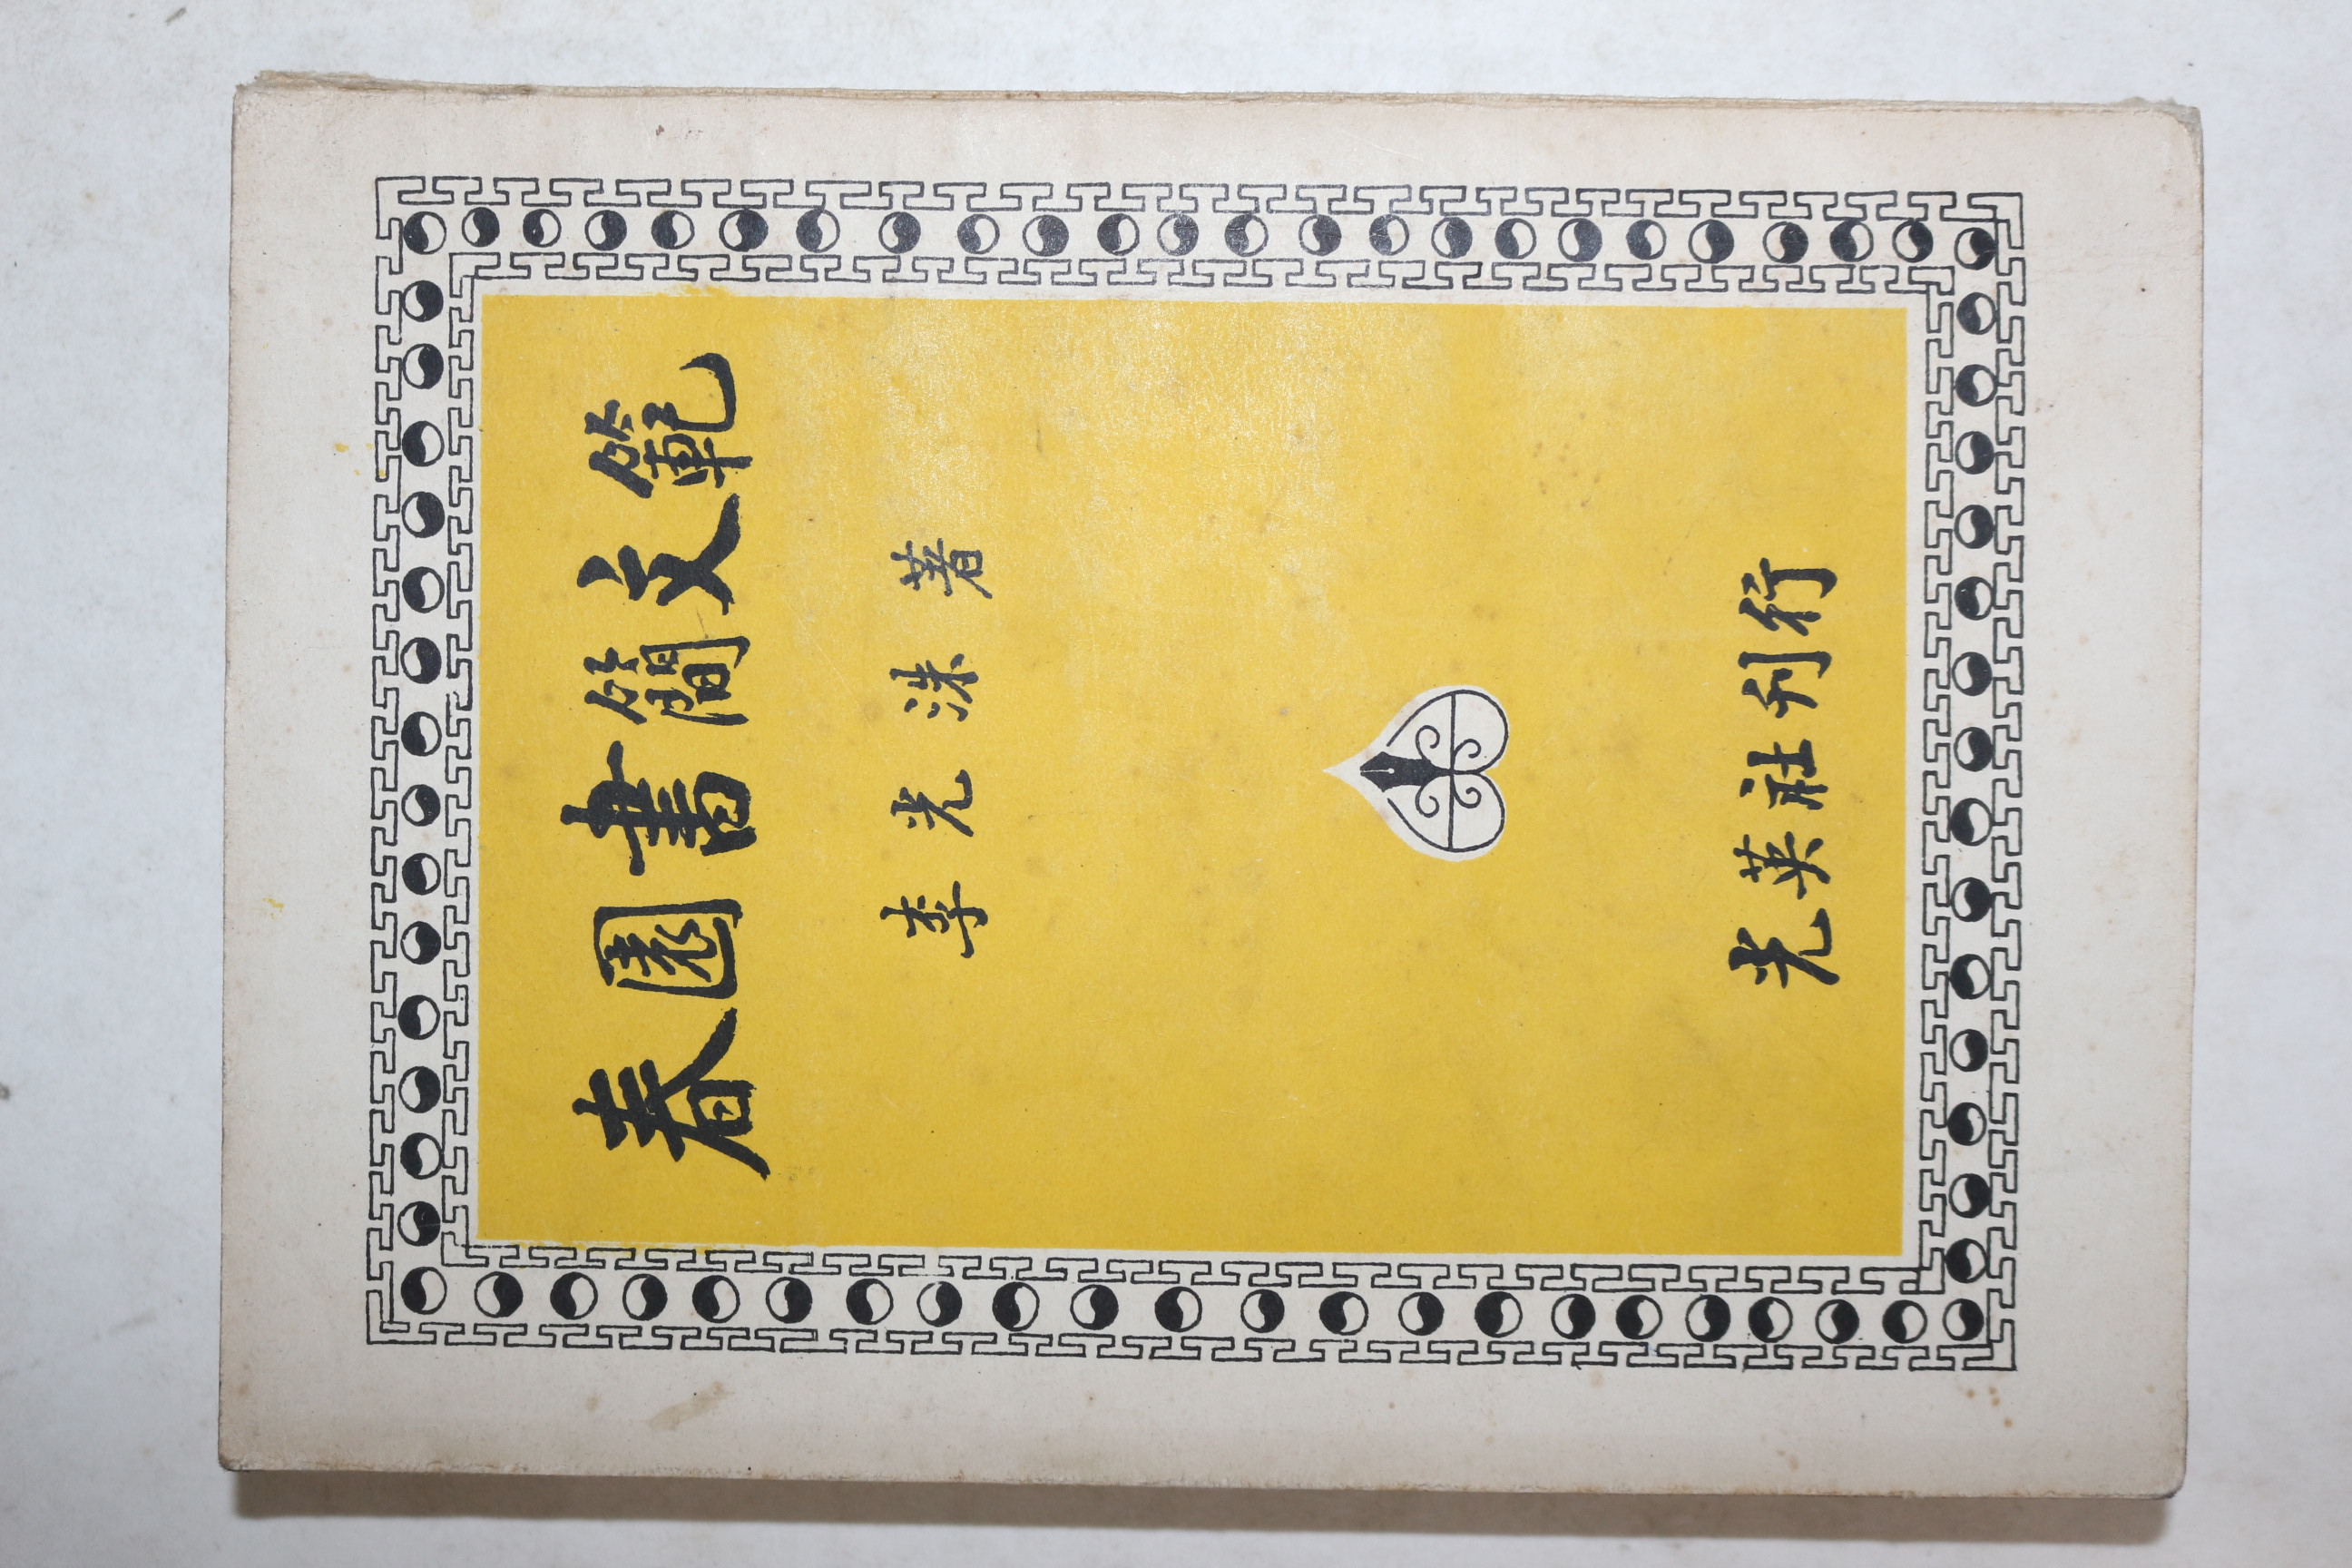 春園書簡文範
李光洙 著
光英社刊行